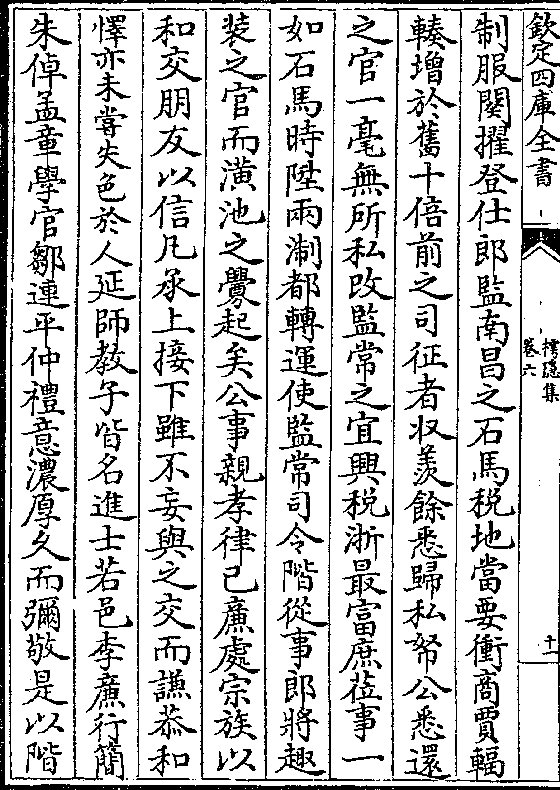 欽定四庫全書
樵隱集
卷六
十一
制服闋擢登仕郎監南昌之石馬税地當要衝商賈輻
輳增於舊十倍前之司征者収羨餘悉歸私帑公悉還
之官一毫無所私改監常之宜興税浙最富庶莅事一
如石馬時陞兩淛都轉運使監常司令階從事郎將趣
装之官而潢池之釁起矣公事親孝律已亷處宗族以
和交朋友以信凡承上接下雖不妄與之交而謙恭和
懌亦未嘗失色於人延師教子皆名進士若邑李亷行簡
朱倬孟章學官鄒連平仲禮意濃厚久而彌敬是以階